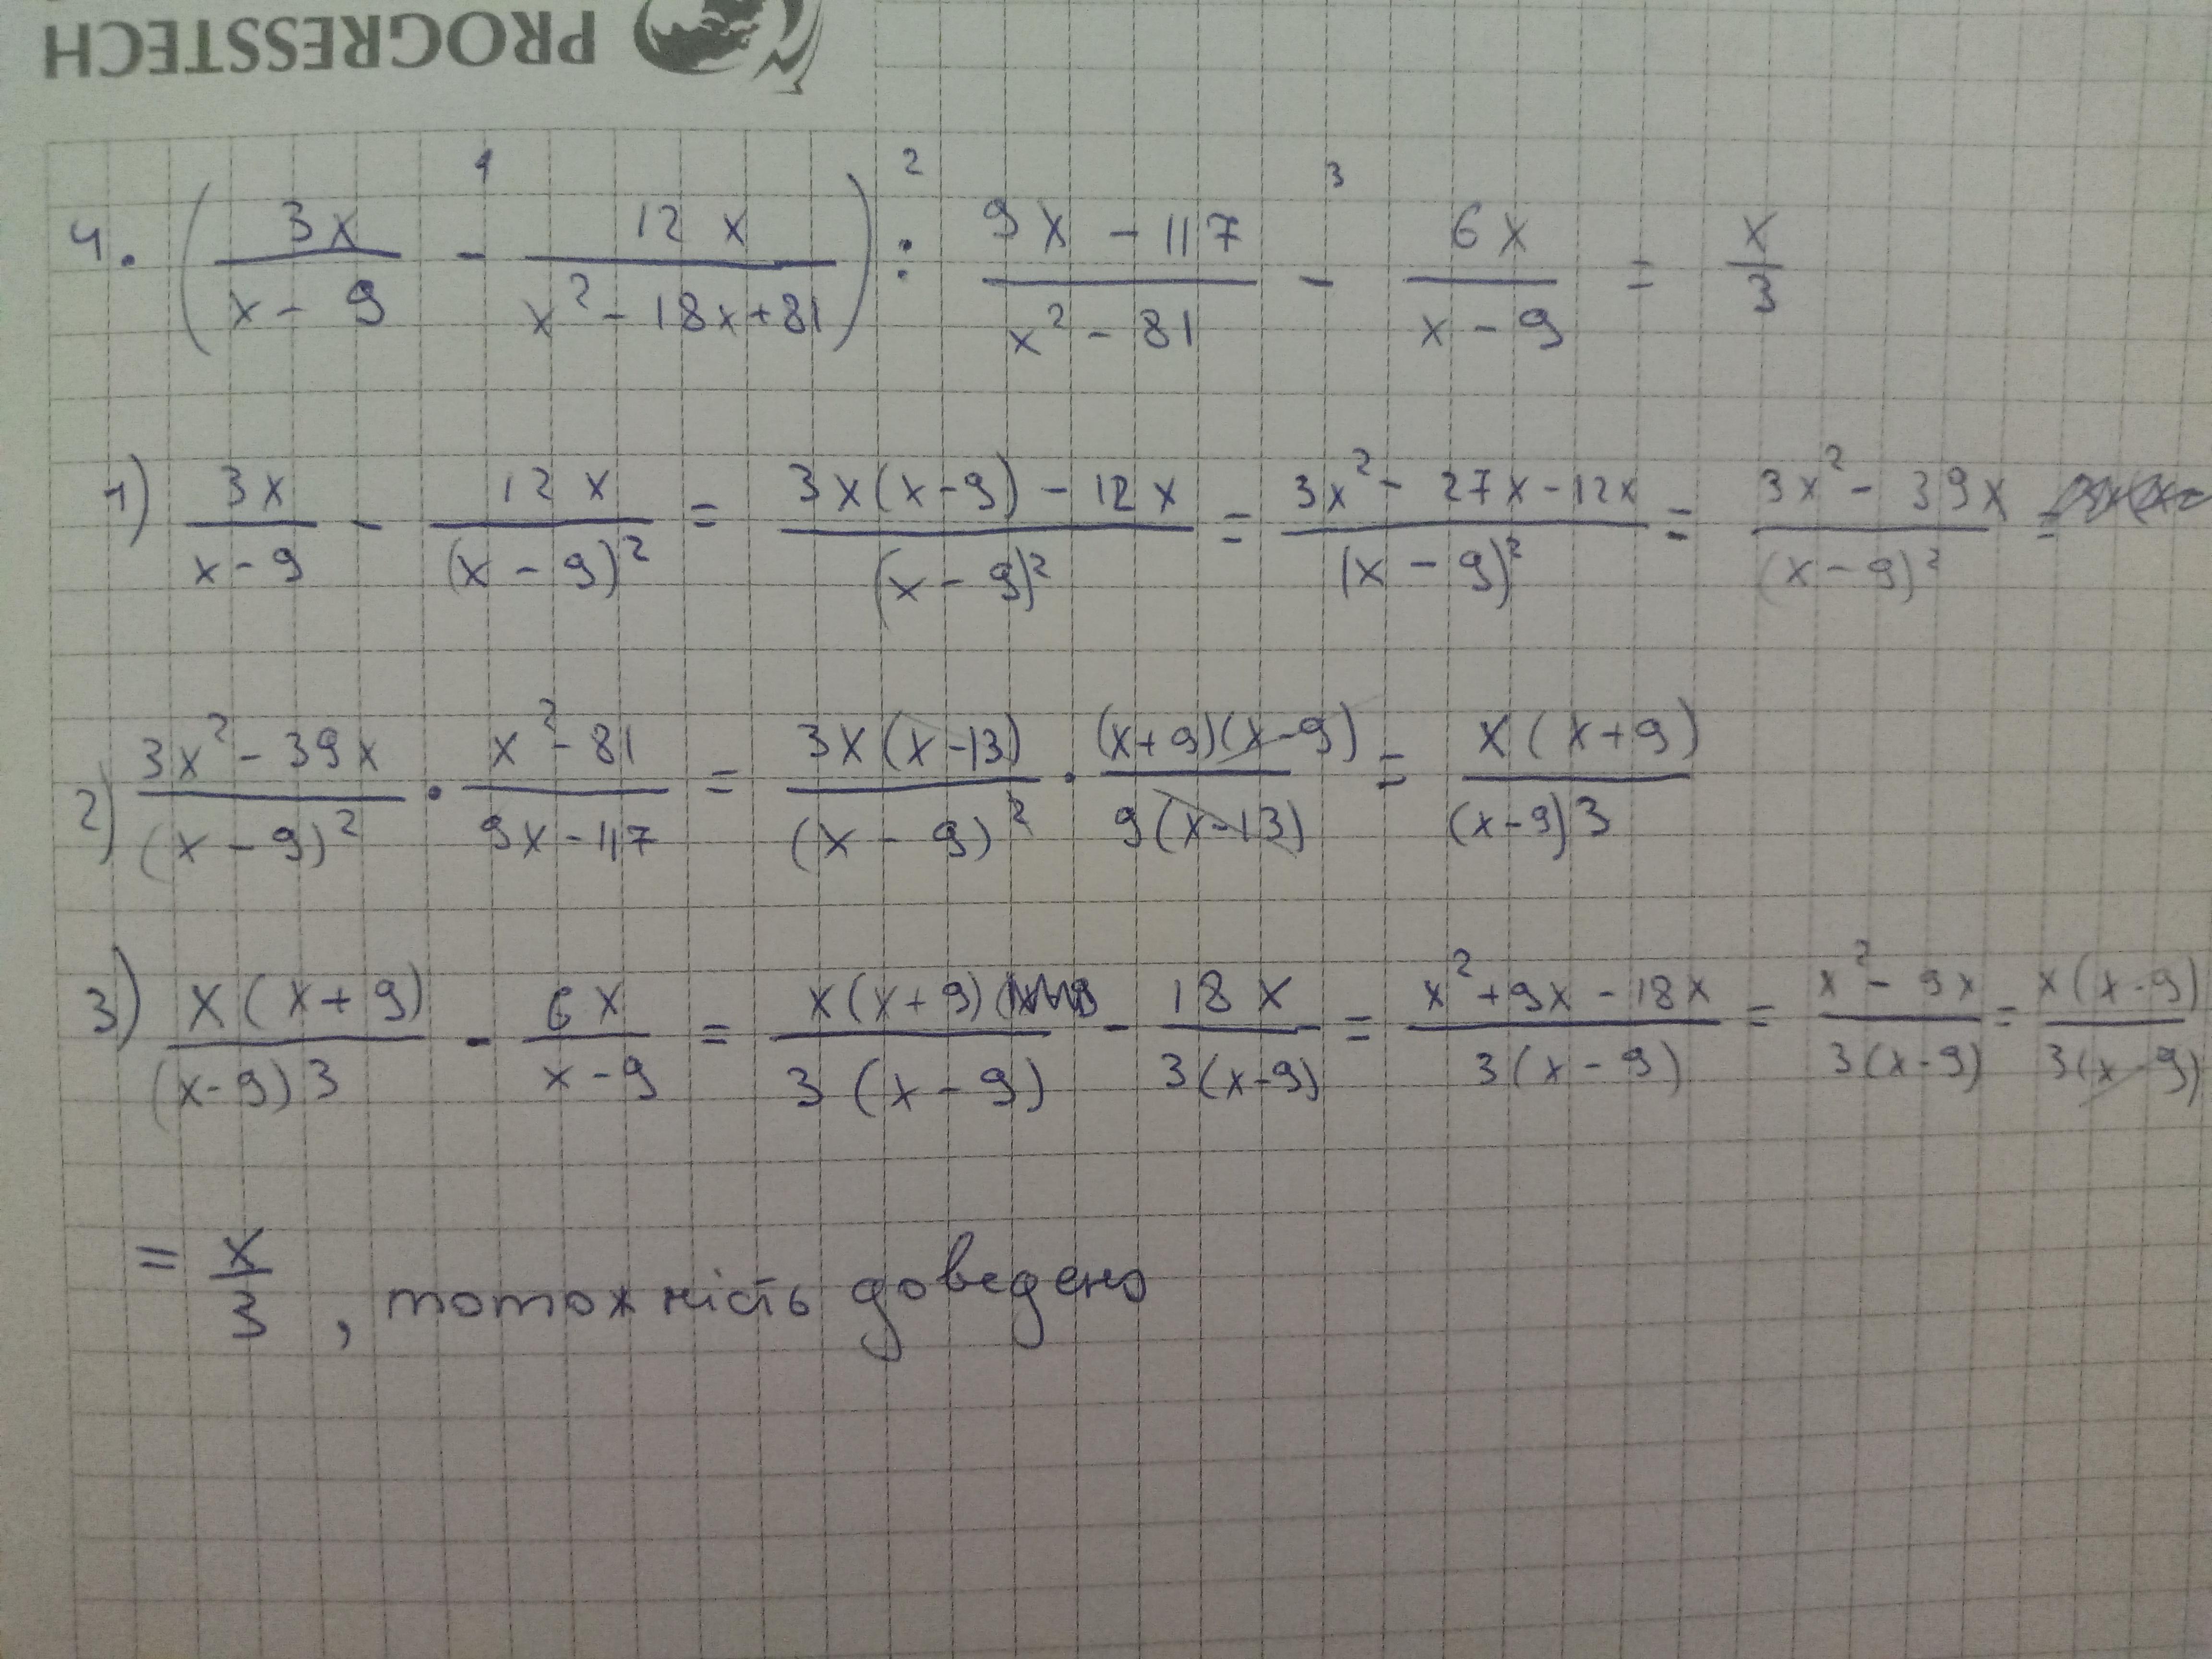 PROGRESSTECH
1 2 3
4. (3x/(x - 9) - 12x/(x² - 18x + 81)) : (9x - 117)/(x² - 81) - 6x/(x - 9) = x/3
1) 3x/(x - 9) - 12x/(x - 9)² = (3x(x - 9) - 12x)/(x - 9)² = (3x² - 27x - 12x)/(x - 9)² = (3x² - 39x)/(x - 9)² =
2) (3x² - 39x)/(x - 9)² · (x² - 81)/(9x - 117) = 3x(x - 13)/(x - 9)² · (x + 9)(x - 9)/9(x - 13) = x(x + 9)/(x - 9)3
3) x(x + 9)/(x - 9)3 - 6x/(x - 9) = x(x + 9)/3(x - 9) - 18x/3(x - 9) = (x² + 9x - 18x)/3(x - 9) = (x² - 9x)/3(x - 9) = x(x - 9)/3(x - 9)
= x/3, тотожність доведено